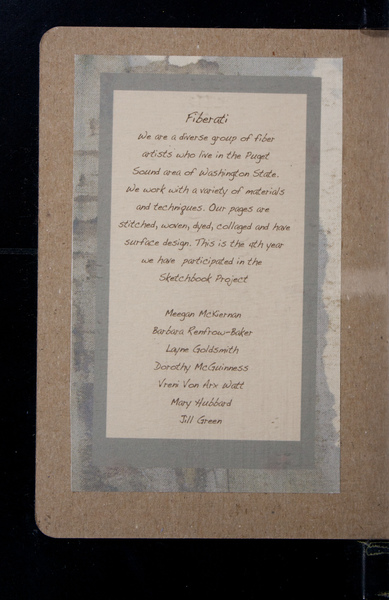 Fiberati
We are a diverse group of fiber
artists who live in the Puget
Sound area of Washington State.
We work with a variety of materials
and techniques. Our pages are
stitched, woven, dyed, collaged and have
surface design. This is the 4th year
we have participated in the
Sketchbook Project
Meegan McKiernan
Barbara Renfrow-Baker
Layne Goldsmith
Dorothy McGuinness
Vreni Von Arx Watt
Mary Hubbard
Jill Green